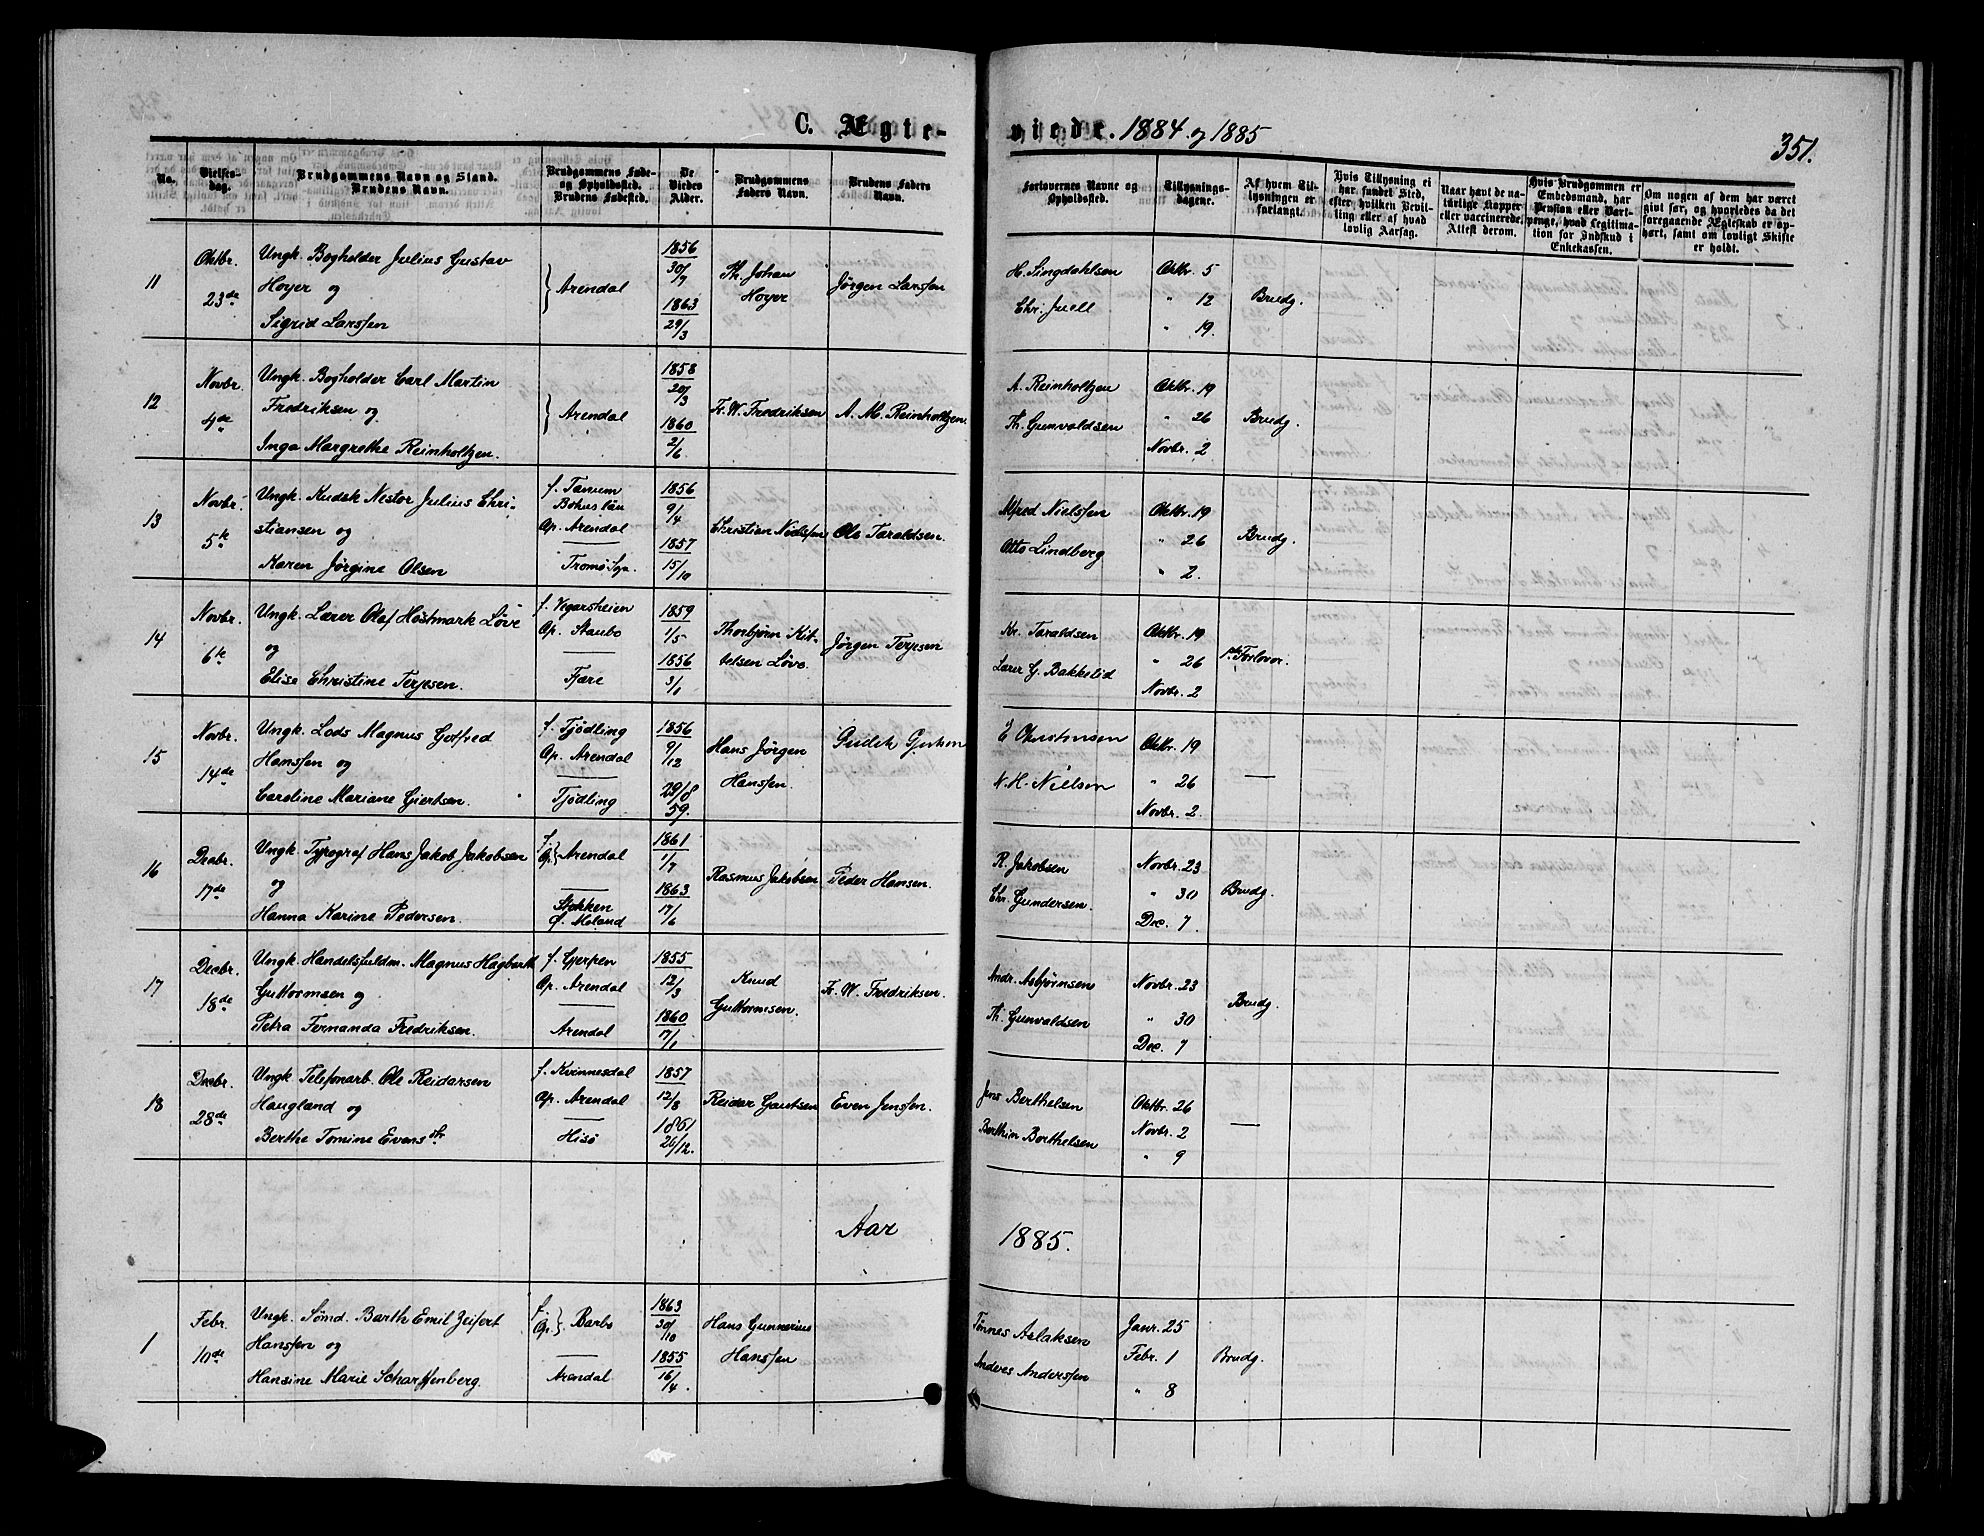 C. Ægte-
viede. 1884 og 1885
351.
No.
Vielses-
dag.
Brudgommens Navn og Stand.
Brudens Navn.
Brudgommens Føde-
og Opholdssted.
Brudens Fødested.
De
Viedes
Alder.
Brudgommens
Faders Navn.
Brudens Faders
Navn.
Forlovernes Navne og
Opholdssted.
Tillysnings-
dagene.
Af hvem Til-
lysningen er
forlangt.
Hvis Tillysning ei
har fundet Sted,
efter hvilken Bevil-
ling eller af hvad
lovlig Aarsag.
Naar havt de na-
turlige Kopper
eller vaccinerede.
Attest derom.
Hvis Brudgommen er
Embedsmand, har
Pension eller Vart-
penge, hvad Legitima-
tion for Indskud i
Enkekassen.
Om nogen af dem har været
givt før, og hvorledes da det
foregaaende Ægteskab er op-
hørt, samt om lovligt Skifte
er holdt.
11
Oktbr.
23de
Ungk. Bogholder Julius Gustav
Hoyer og
Sigrid Larssen
} Arendal
1856
30/7
1863
29/3
Th. Johan
Hoyer
Jørgen Larssen
H. Singdahlsen
Chr. Juell
Oktbr. 5
" 12
" 19.
Brudg.
12
Novbr.
4de
Ungk. Bogholder Carl Martin
Fredriksen og
Inga Margrethe Reinholtzen.
} Arendal
1858
20/3
1860
2/6
Fr. W. Fredriksen
A. M. Reinholtzen.
A. Reinholtzen
Th. Gunvaldsen
Oktbr. 19
" 26
Novbr. 2
Brudg.
13
Novbr.
5te
Ungk. Kudsk Nestor Julius Chri-
stiansen og
Karen Jørgine Olsen
f. Tanum
Bohuslän
Op. Arendal
Tromø Sgn.
1856
9/4
1857
15/10
Christian Nielssen
Ole Taraldsen.
Alfred Nielssen
Otto Lindberg
Oktbr. 19
" 26
" 2.
Brudg.
14
Novbr.
6te
Ungk. Lærer Olaf Høstmark Løve
og
Elise Christine Terjesen.
f. Vegarsheien
Op. Staubo
Fjære
1859
1/5
1856
3/1
Thorbjørn Kit-
telsen Løve.
Jørgen Terjesen
Kr. Taraldsen
Lærer G. Bakkelid
Oktbr. 19
" 26
Novbr. 2
Forlover.
15
Novbr.
14de
Ungk. Lods Magnus Gotfred
Hanssen og
Caroline Mariane Giertsen.
f. Tjødling
Op. Arendal
Tjødling
1856
9/12
29/8
59.
Hans Jørgen
Hanssen.
E Christensen
N. H. Nielsen
Oktbr. 19
" 26
Novbr. 2
16
Decbr.
17de
Ungk. Typograf Hans Jakob Jakobsen
og
Hanna Karine Pedersen.
f.
Op. } Arendal
Stokken
Ø. Moland
1861
1/7
1863
17/6
Rasmus Jakobsen
Peder Hansen.
R. Jakobsen
Chr. Gundersen.
Novbr. 23
" 30
Dec. 7
Brudg.
17
Decbr.
18de
Ungk. Handelsfuldm. Magnus Hagbarth
Guttormsen og
Petra Fernanda Fredriksen.
f. Gjerpen
Op. Arendal
Arendal
1855
12/3
1860
17/1
Knud
Guttormsen.
Fr. W. Fredriksen.
Andr. Asbjørnsen
Th. Gunvaldsen
Novbr. 23
" 30
Dec. 7
Brudg.
18
Decbr.
28de
Ungk. Telefonarb. Ole Reidarsen
Haugland og
Berthe Tomine Evensdtr
f. Kvinnesdal
Op. Arendal
Hisø
1857
12/8
1861
26/12.
Reidar Gautsen
Even Jenssen.
Jens Berthelsen
Berthin Berthelsen
Oktbr. 26
Novbr. 2
" 9
Aar
1885.
1
Febr.
10de
Ungk. Sømd. Barth Emil Zeifert
Hanssen og
Hansine Marie Scharffenberg.
f.
Op. } Barbo
Arendal
1863
30/10
1855
16/4
Hans Gunnerius
Hanssen
Tønnes Aslaksen
Anders Anderssen
Janr. 25
Febr. 1
" 8
Brudg.